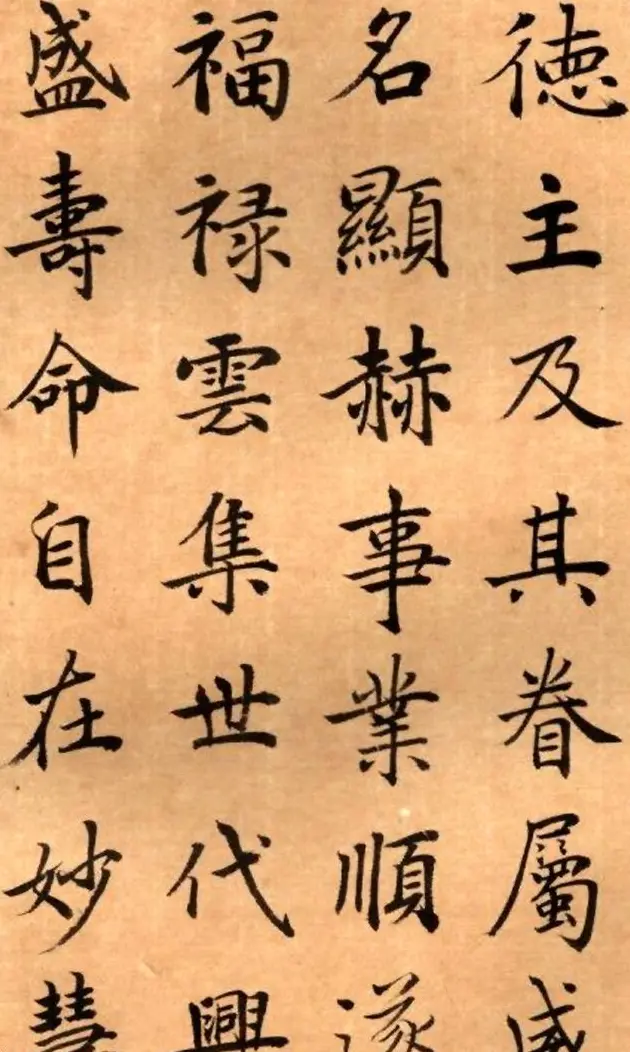 德主及其眷屬威
名顯赫事業順遂
福禄雲集世代興
盛壽命自在妙慧